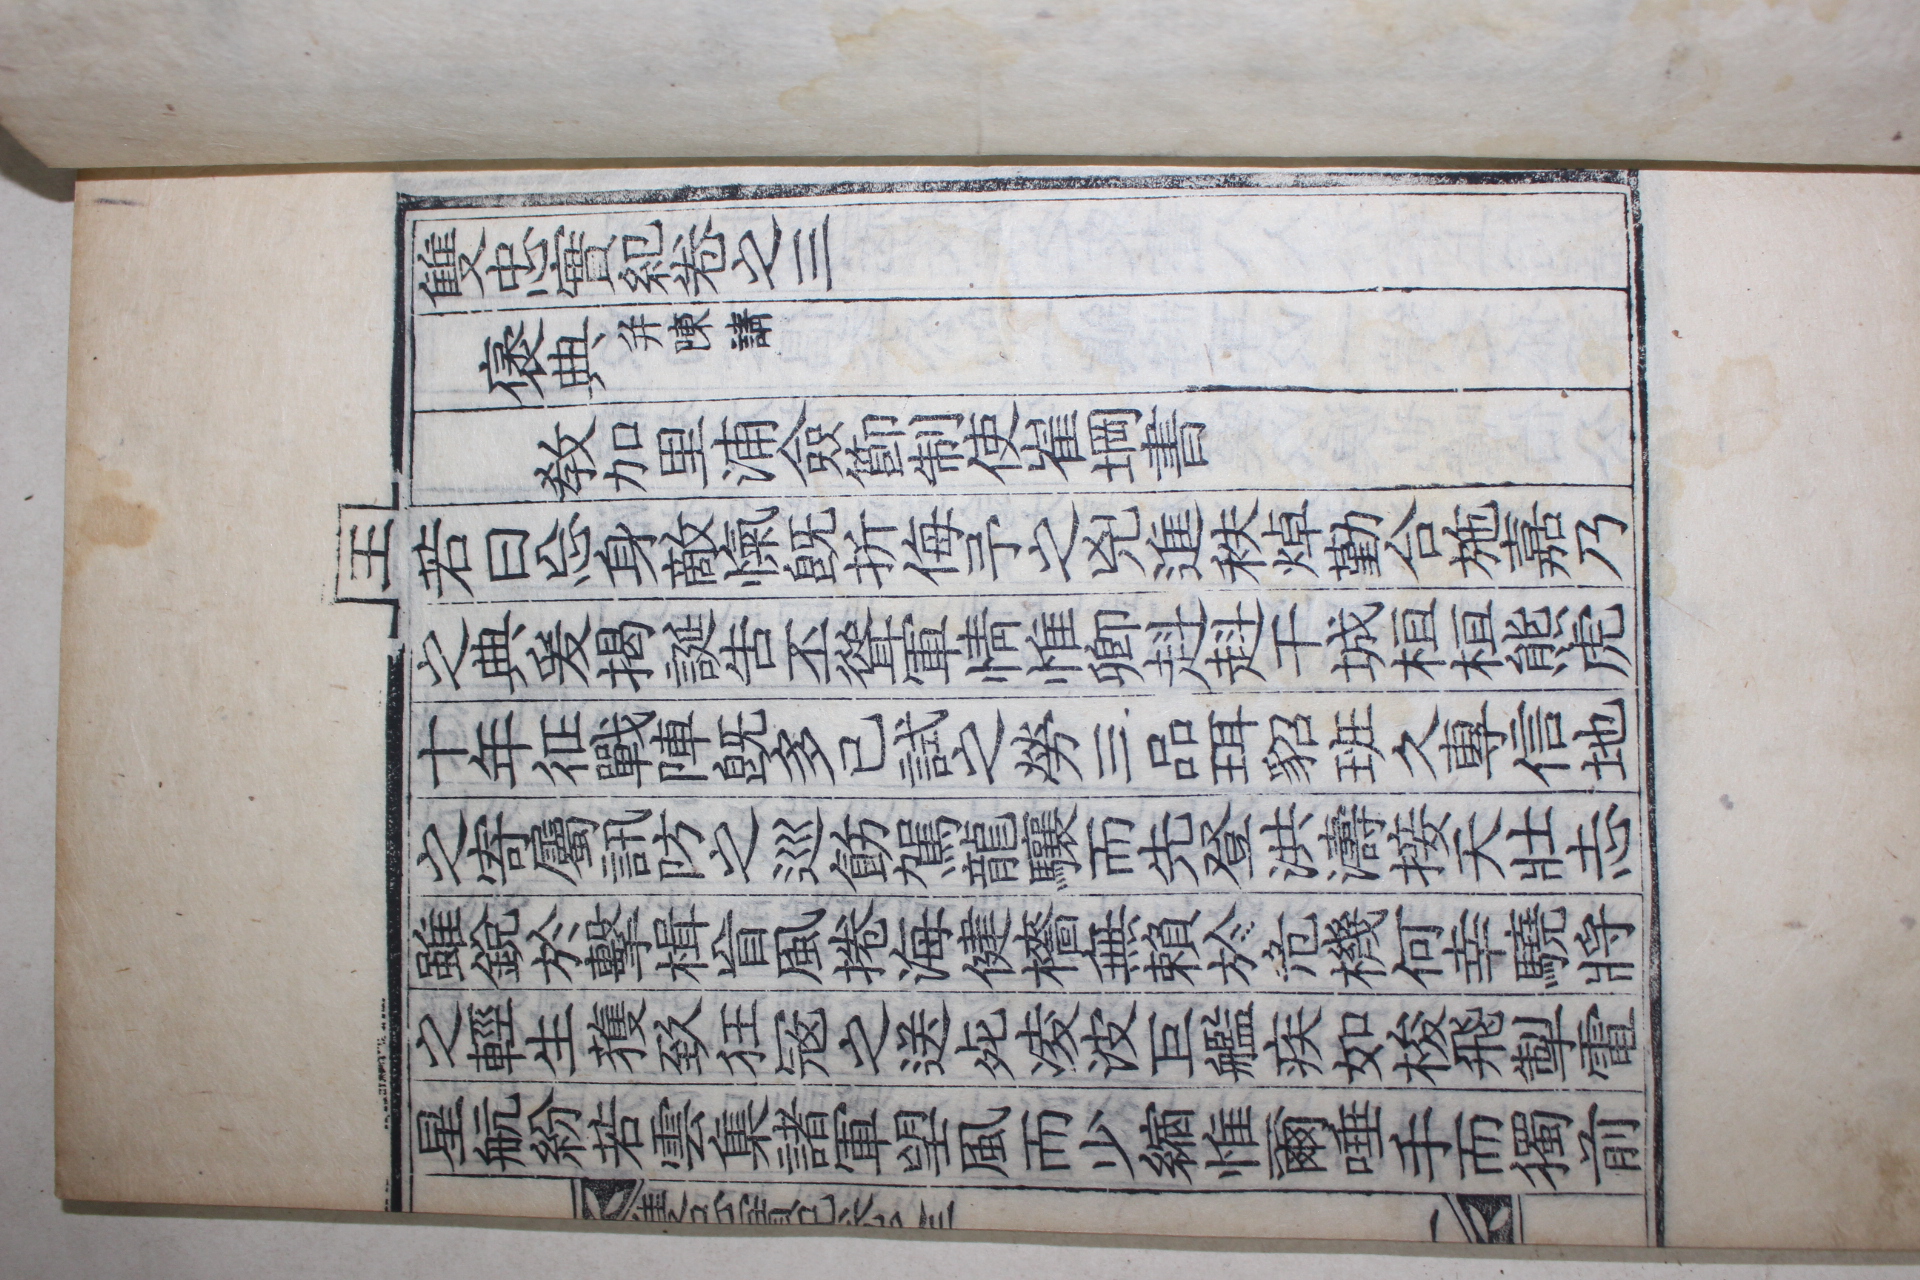 雙忠實紀卷之三
褒典 幷陳請
敎加里浦僉節制使崔堈書
王若曰忘身敵愾旣折侮予之兇進秩焯勤合施嘉乃
之典爰揭誕告丕聳軍情惟卿赳赳干城桓桓熊虎
十年征戰陣旣多已試之勞三品珥貂班久專信地
之寄屬訊防之巡飭駕龍驤而先登洪濤接天壯志
雖銳於擊楫盲風捲海健檣無賴於危機何幸驍將
之輕生獲致狂寇之送死凌波巨艦疾如梭飛掣電
星航紛若雲集諸軍望風而少縮惟爾唾手而獨前